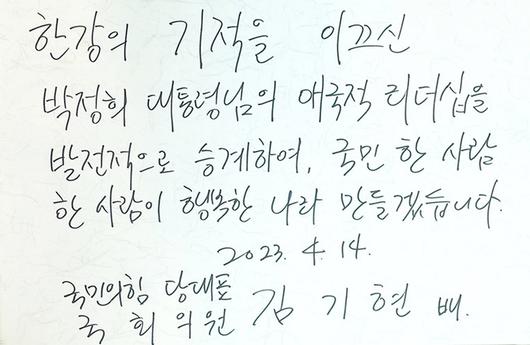 한강의 기적을 이끄신
박정희 대통령님의 애국적 리더십을
발전적으로 승계하여, 국민 한 사람
한 사람이 행복한 나라 만들겠습니다.
2023. 4. 14.
국민의힘 당대표
국회의원 김기현 배.